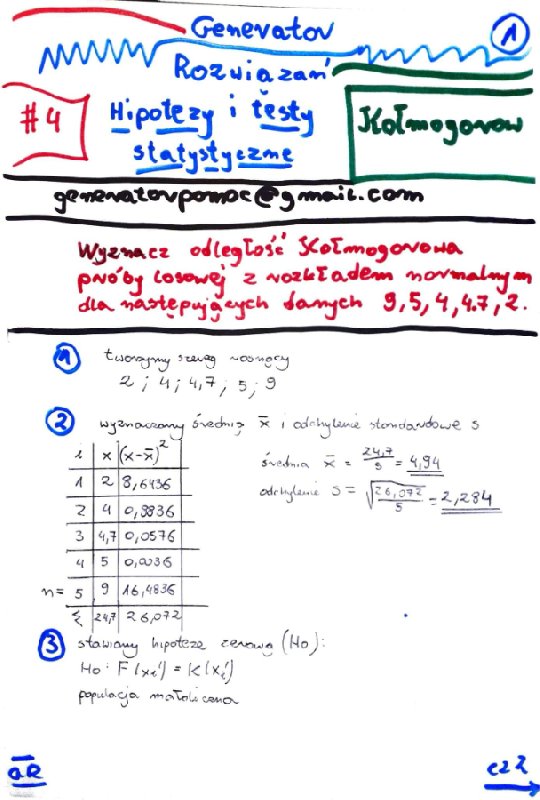 Generator
1
Rozwiązań
#4
Hipotezy i testy
statystyczne
Kołmogorow
generatorpomoc@gmail.com
Wyznacz odległość Kołmogorowa
próby losowej z rozkładem normalnym
dla następujących danych 9,5,4,4.7,2.
1 tworzymy szereg rosnący
2 ; 4 ; 4,7 ; 5 ; 9
2 wyznaczamy średnią x̄ i odchylenie standardowe s
i x (x-x̄)²
1 2 8,6436
2 4 0,8836
3 4,7 0,0576
4 5 0,0036
n= 5 9 16,4836
Σ 24,7 26,072
średnia x̄ = 24,7/5 = 4,94
odchylenie S = √26,072/5 = 2,284
3 stawiamy hipotezę zerową (Ho):
Ho: F(xi') = K(xi')
populacja małoliczna
aR
cz 2